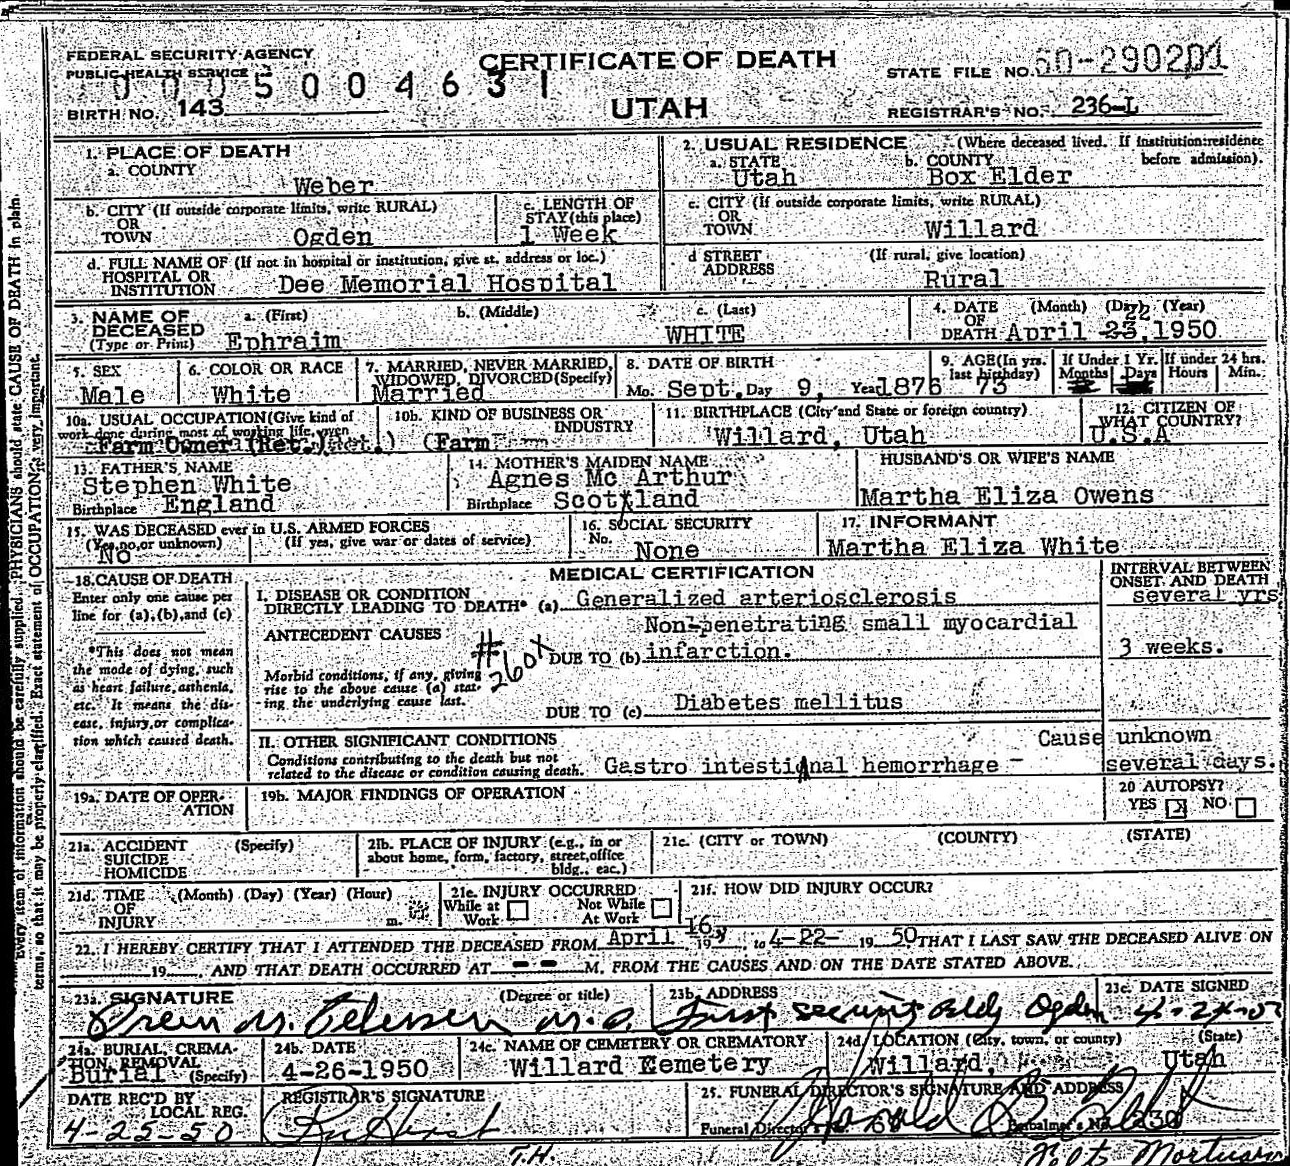 FEDERAL SECURITY AGENCY
PUBLIC HEALTH SERVICE
CERTIFICATE OF DEATH
UTAH
STATE FILE NO. 50-290201
BIRTH NO. 143 500 4631
REGISTRAR'S NO. 236-L
1. PLACE OF DEATH
a. COUNTY
Weber
2. USUAL RESIDENCE (Where deceased lived. If institution: residence before admission).
a. STATE
Utah
b. COUNTY
Box Elder
b. CITY (If outside corporate limits, write RURAL)
OR
TOWN
Ogden
c. LENGTH OF
STAY (this place)
1 Week
c. CITY (If outside corporate limits, write RURAL)
OR
TOWN
Willard
d. FULL NAME OF (If not in hospital or institution, give st. address or loc.)
HOSPITAL OR
INSTITUTION
Dee Memorial Hospital
d STREET
ADDRESS
(If rural, give location)
Rural
3. NAME OF
DECEASED
(Type or Print)
a. (First)
Ephraim
b. (Middle)
c. (Last)
WHITE
4. DATE
OF
DEATH
(Month) (Day) (Year)
22
April 23, 1950
5. SEX
Male
6. COLOR OR RACE
White
7. MARRIED, NEVER MARRIED,
WIDOWED, DIVORCED (Specify)
Married
8. DATE OF BIRTH
Mo. Sept. Day 9, Year 1876
9. AGE (In yrs.
last birthday)
73
If Under 1 Yr.
Months Days
If under 24 hrs.
Hours Min.
10a. USUAL OCCUPATION (Give kind of
work done during most of working life, even
Farm Owner (Ret.)
10b. KIND OF BUSINESS OR
INDUSTRY
(Farm
11. BIRTHPLACE (City and State or foreign country)
Willard, Utah
12. CITIZEN OF
WHAT COUNTRY?
U.S.A
13. FATHER'S NAME
Stephen White
Birthplace England
14. MOTHER'S MAIDEN NAME
Agnes Mc Arthur
Birthplace Scotland
HUSBAND'S OR WIFE'S NAME
Martha Eliza Owens
15. WAS DECEASED ever in U.S. ARMED FORCES
(Yes, no, or unknown) (If yes, give war or dates of service)
No
16. SOCIAL SECURITY
No.
None
17. INFORMANT
Martha Eliza White
18. CAUSE OF DEATH
Enter only one cause per
line for (a), (b), and (c)
*This does not mean
the mode of dying, such
as heart failure, asthenia,
etc. It means the dis-
ease, injury, or complica-
tion which caused death.
MEDICAL CERTIFICATION
INTERVAL BETWEEN
ONSET AND DEATH
I. DISEASE OR CONDITION
DIRECTLY LEADING TO DEATH* (a) Generalized arteriosclerosis
several yrs
ANTECEDENT CAUSES
#260X
Morbid conditions, if any, giving
rise to the above cause (a) stat-
ing the underlying cause last.
Non-penetrating small myocardial
DUE TO (b) infarction.
3 weeks.
DUE TO (c) Diabetes mellitus
II. OTHER SIGNIFICANT CONDITIONS
Conditions contributing to the death but not
related to the disease or condition causing death.
Cause unknown
Gastro intestinal hemorrhage -
several days.
19a. DATE OF OPER-
ATION
19b. MAJOR FINDINGS OF OPERATION
20 AUTOPSY?
YES X NO
21a. ACCIDENT
SUICIDE
HOMICIDE
(Specify)
21b. PLACE OF INJURY (e.g., in or
about home, form, factory, street, office
bldg., eac.)
21c. (CITY or TOWN) (COUNTY) (STATE)
21d. TIME
OF
INJURY
(Month) (Day) (Year) (Hour)
m.
21e. INJURY OCCURRED
While at
Work
Not While
At Work
21f. HOW DID INJURY OCCUR?
22. I HEREBY CERTIFY THAT I ATTENDED THE DECEASED FROM April 16, 19 to 4-22- 19 50 THAT I LAST SAW THE DECEASED ALIVE ON
19 , AND THAT DEATH OCCURRED AT -- M. FROM THE CAUSES AND ON THE DATE STATED ABOVE.
23a. SIGNATURE
(Degree or title)
M. Petersen M.D.
23b. ADDRESS
First Security Bldg Ogden
23c. DATE SIGNED
24a. BURIAL, CREMA-
TION, REMOVAL
Burial (Specify)
24b. DATE
4-26-1950
24c. NAME OF CEMETERY OR CREMATORY
Willard Cemetery
24d. LOCATION (City, town, or county) (State)
Willard, Utah
DATE REC'D BY
LOCAL REG.
4-25-50
REGISTRAR'S SIGNATURE
25. FUNERAL DIRECTOR'S SIGNATURE AND ADDRESS
Harold B.
Funeral Director's
Embalmer's No. 230
T.H.
Mortuary
Every item of information should be carefully supplied. PHYSICIANS should state CAUSE OF DEATH in plain
terms, so that it may be properly classified. Exact statement of OCCUPATION is very important.